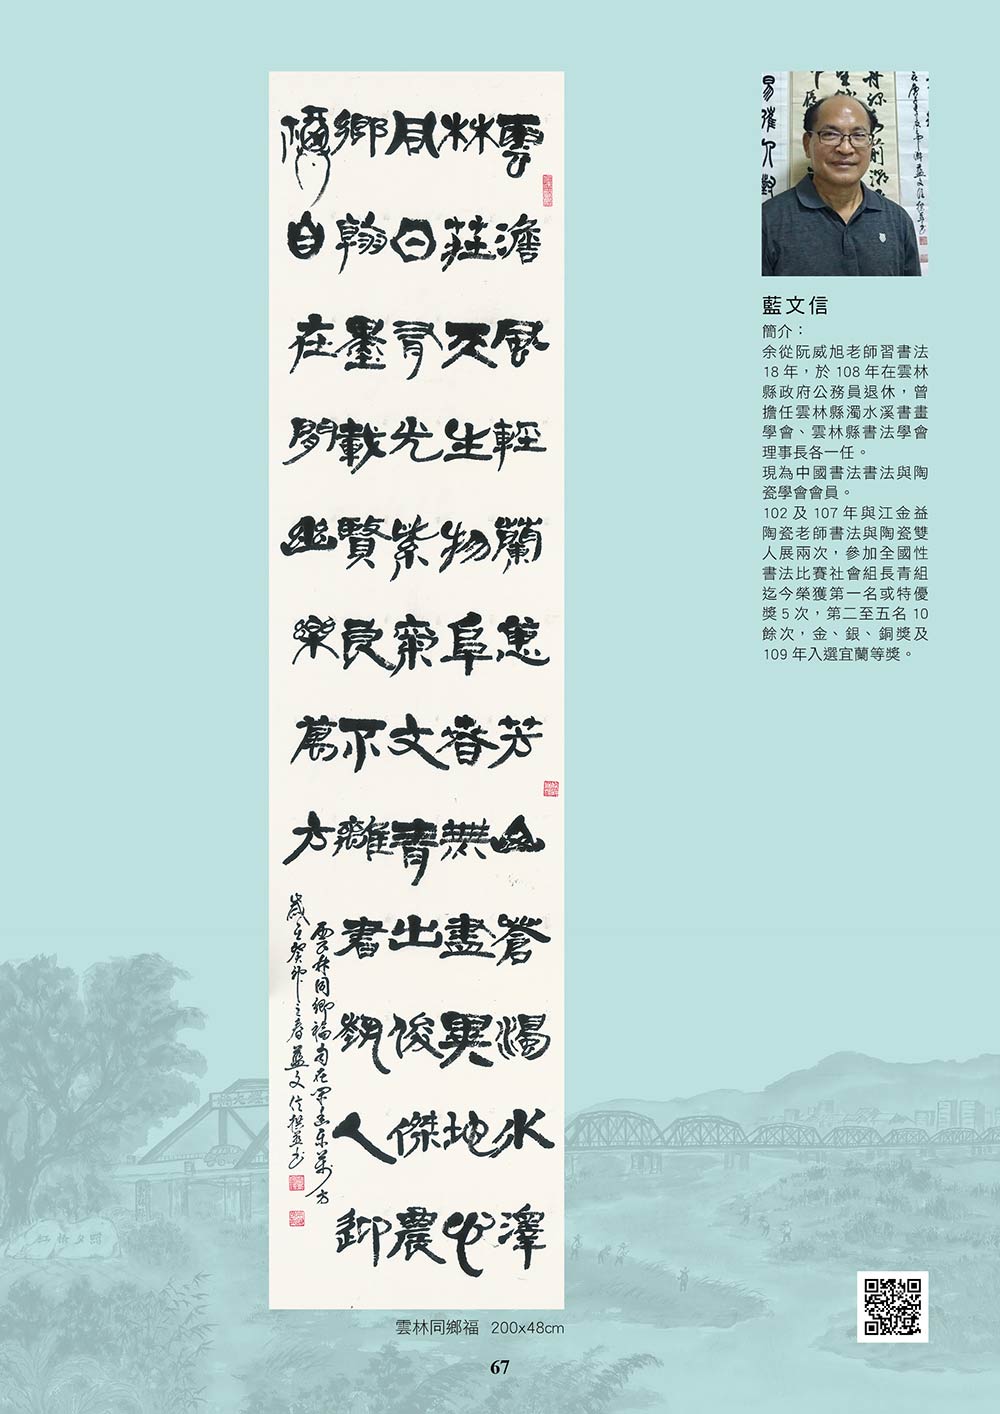 雲澹風輕蘭蕙芳山蒼濁水澤
林莊天生物阜春無盡異地心
同日有光紫氣文章出俊傑農
鄉翰墨載賢良不離書人
福自在閒幽樂萬方
雲林同鄉福自在閒幽樂萬方
歲之癸卯之春藍文信撰並書
藍文信
簡介：
余從阮威旭老師習書法
18 年，於 108 年在雲林
縣政府公務員退休，曾
擔任雲林縣濁水溪書畫
學會、雲林縣書法學會
理事長各一任。
現為中國書法書法與陶
瓷學會會員。
102 及 107 年與江金益
陶瓷老師書法與陶瓷雙
人展兩次，參加全國性
書法比賽社會組長青組
迄今榮獲第一名或特優
獎 5 次，第二至五名 10
餘次，金、銀、銅獎及
109 年入選宜蘭等獎。
雲林同鄉福 200x48cm
67